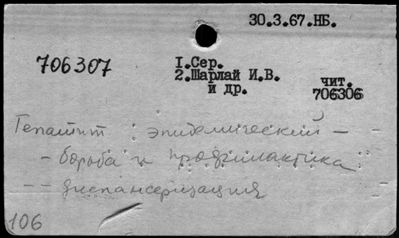 30.3.67.НБ.
706307
1.Сер.
2.Шарлай И.В.
и др.
чит.
706306
Гепатит : эпидемический –
- борьба и профилактика
-- диспансеризация
106